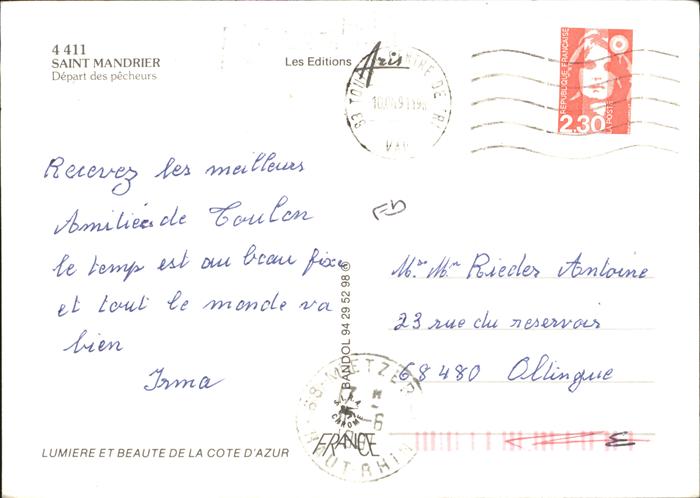 4 411
SAINT MANDRIER
Départ des pêcheurs
Les Editions Aris
83 TOULON CENTRE DE TRI
VAR
REPUBLIQUE FRANÇAISE
2,30
LA POSTE
Recevez les meilleurs
Amitiées de Toulon
le temps est au beau fixe
et tout le monde va
bien
Irma
FD
Mr Mm Rieder Antoine
23 rue du reservoir
68480 Oltingue
BANDOL 94 29 52 98 ©
FRANCE
HAUT-RHIN
LUMIERE ET BEAUTE DE LA COTE D'AZUR